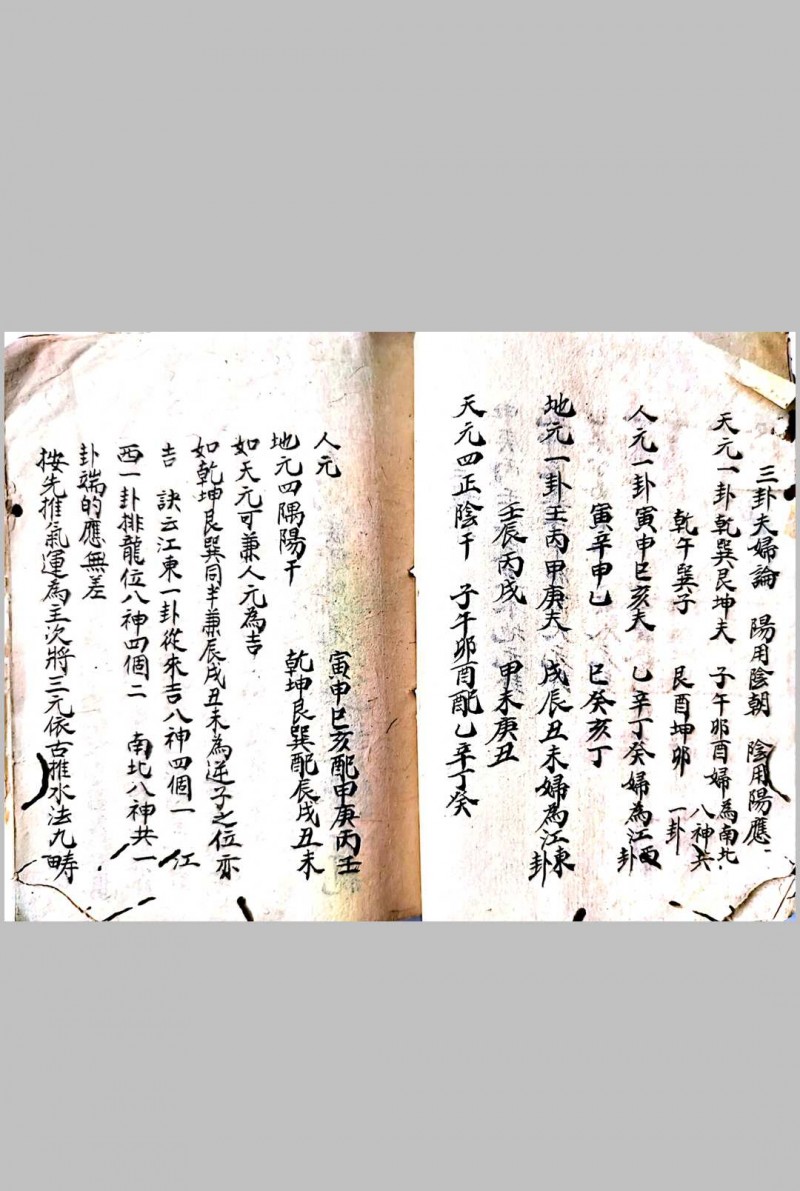 三卦夫婦論 陽用陰朝 陰用陽應
天元一卦乾巽艮坤夫 子午卯酉婦為南北八神共一卦
乾午巽子 艮酉坤卯
人元一卦寅申巳亥夫 乙辛丁癸婦為江西卦
寅辛申乙 巳癸亥丁
地元一卦壬丙甲庚夫 戌辰丑未婦為江東卦
壬辰丙戌 甲未庚丑
天元四正陰干 子午卯酉配乙辛丁癸
人元 寅申巳亥配甲庚丙壬
地元四隅陽干 乾坤艮巽配辰戌丑未
如天元可兼人元為吉
如乾坤艮巽同半兼辰戌丑未為逆子之位亦
吉 訣云江東一卦從來吉八神四個一 江
西一卦排龍位八神四個二 南北八神共一
卦端的應無差
按先推氣運為主次將三元依古推水法九疇